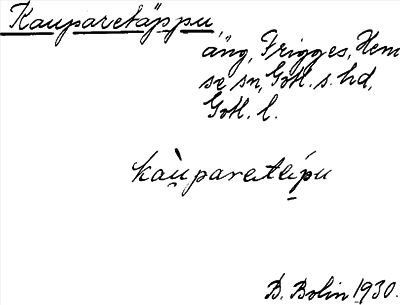 Kauparetäppu,
äng, Frigges, Hem
se sn, Gotl. s. hd,
Gotl. l.
kaùparetäípu
B. Bolin 1930.